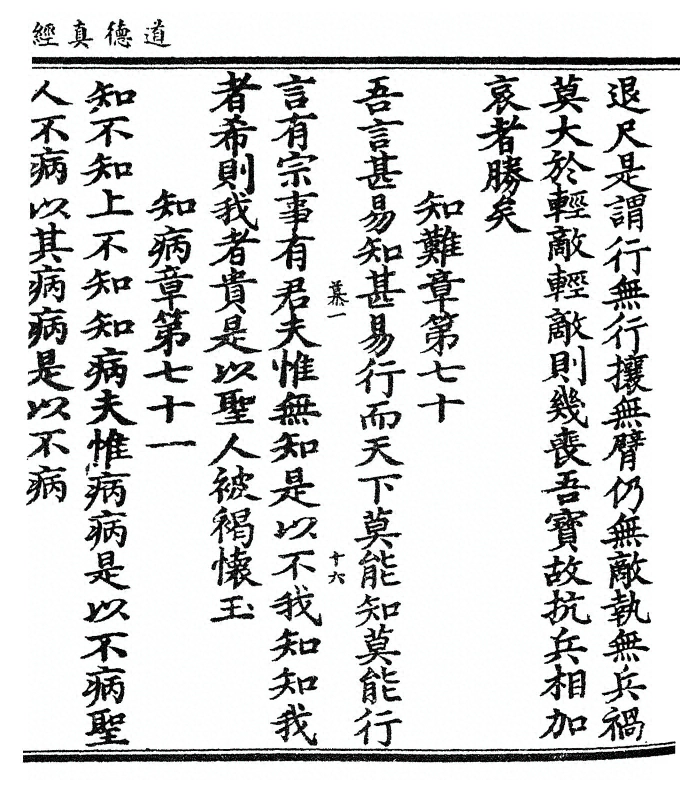 道德真經
退尺是謂行無行攘無臂仍無敵執無兵禍
莫大於輕敵輕敵則幾喪吾寶故抗兵相加
哀者勝矣
知難章第七十
吾言甚易知甚易行而天下莫能知莫能行
慕一
十六
言有宗事有君夫惟無知是以不我知知我
者希則我者貴是以聖人被褐懷玉
知病章第七十一
知不知上不知知病夫惟病病是以不病聖
人不病以其病病是以不病